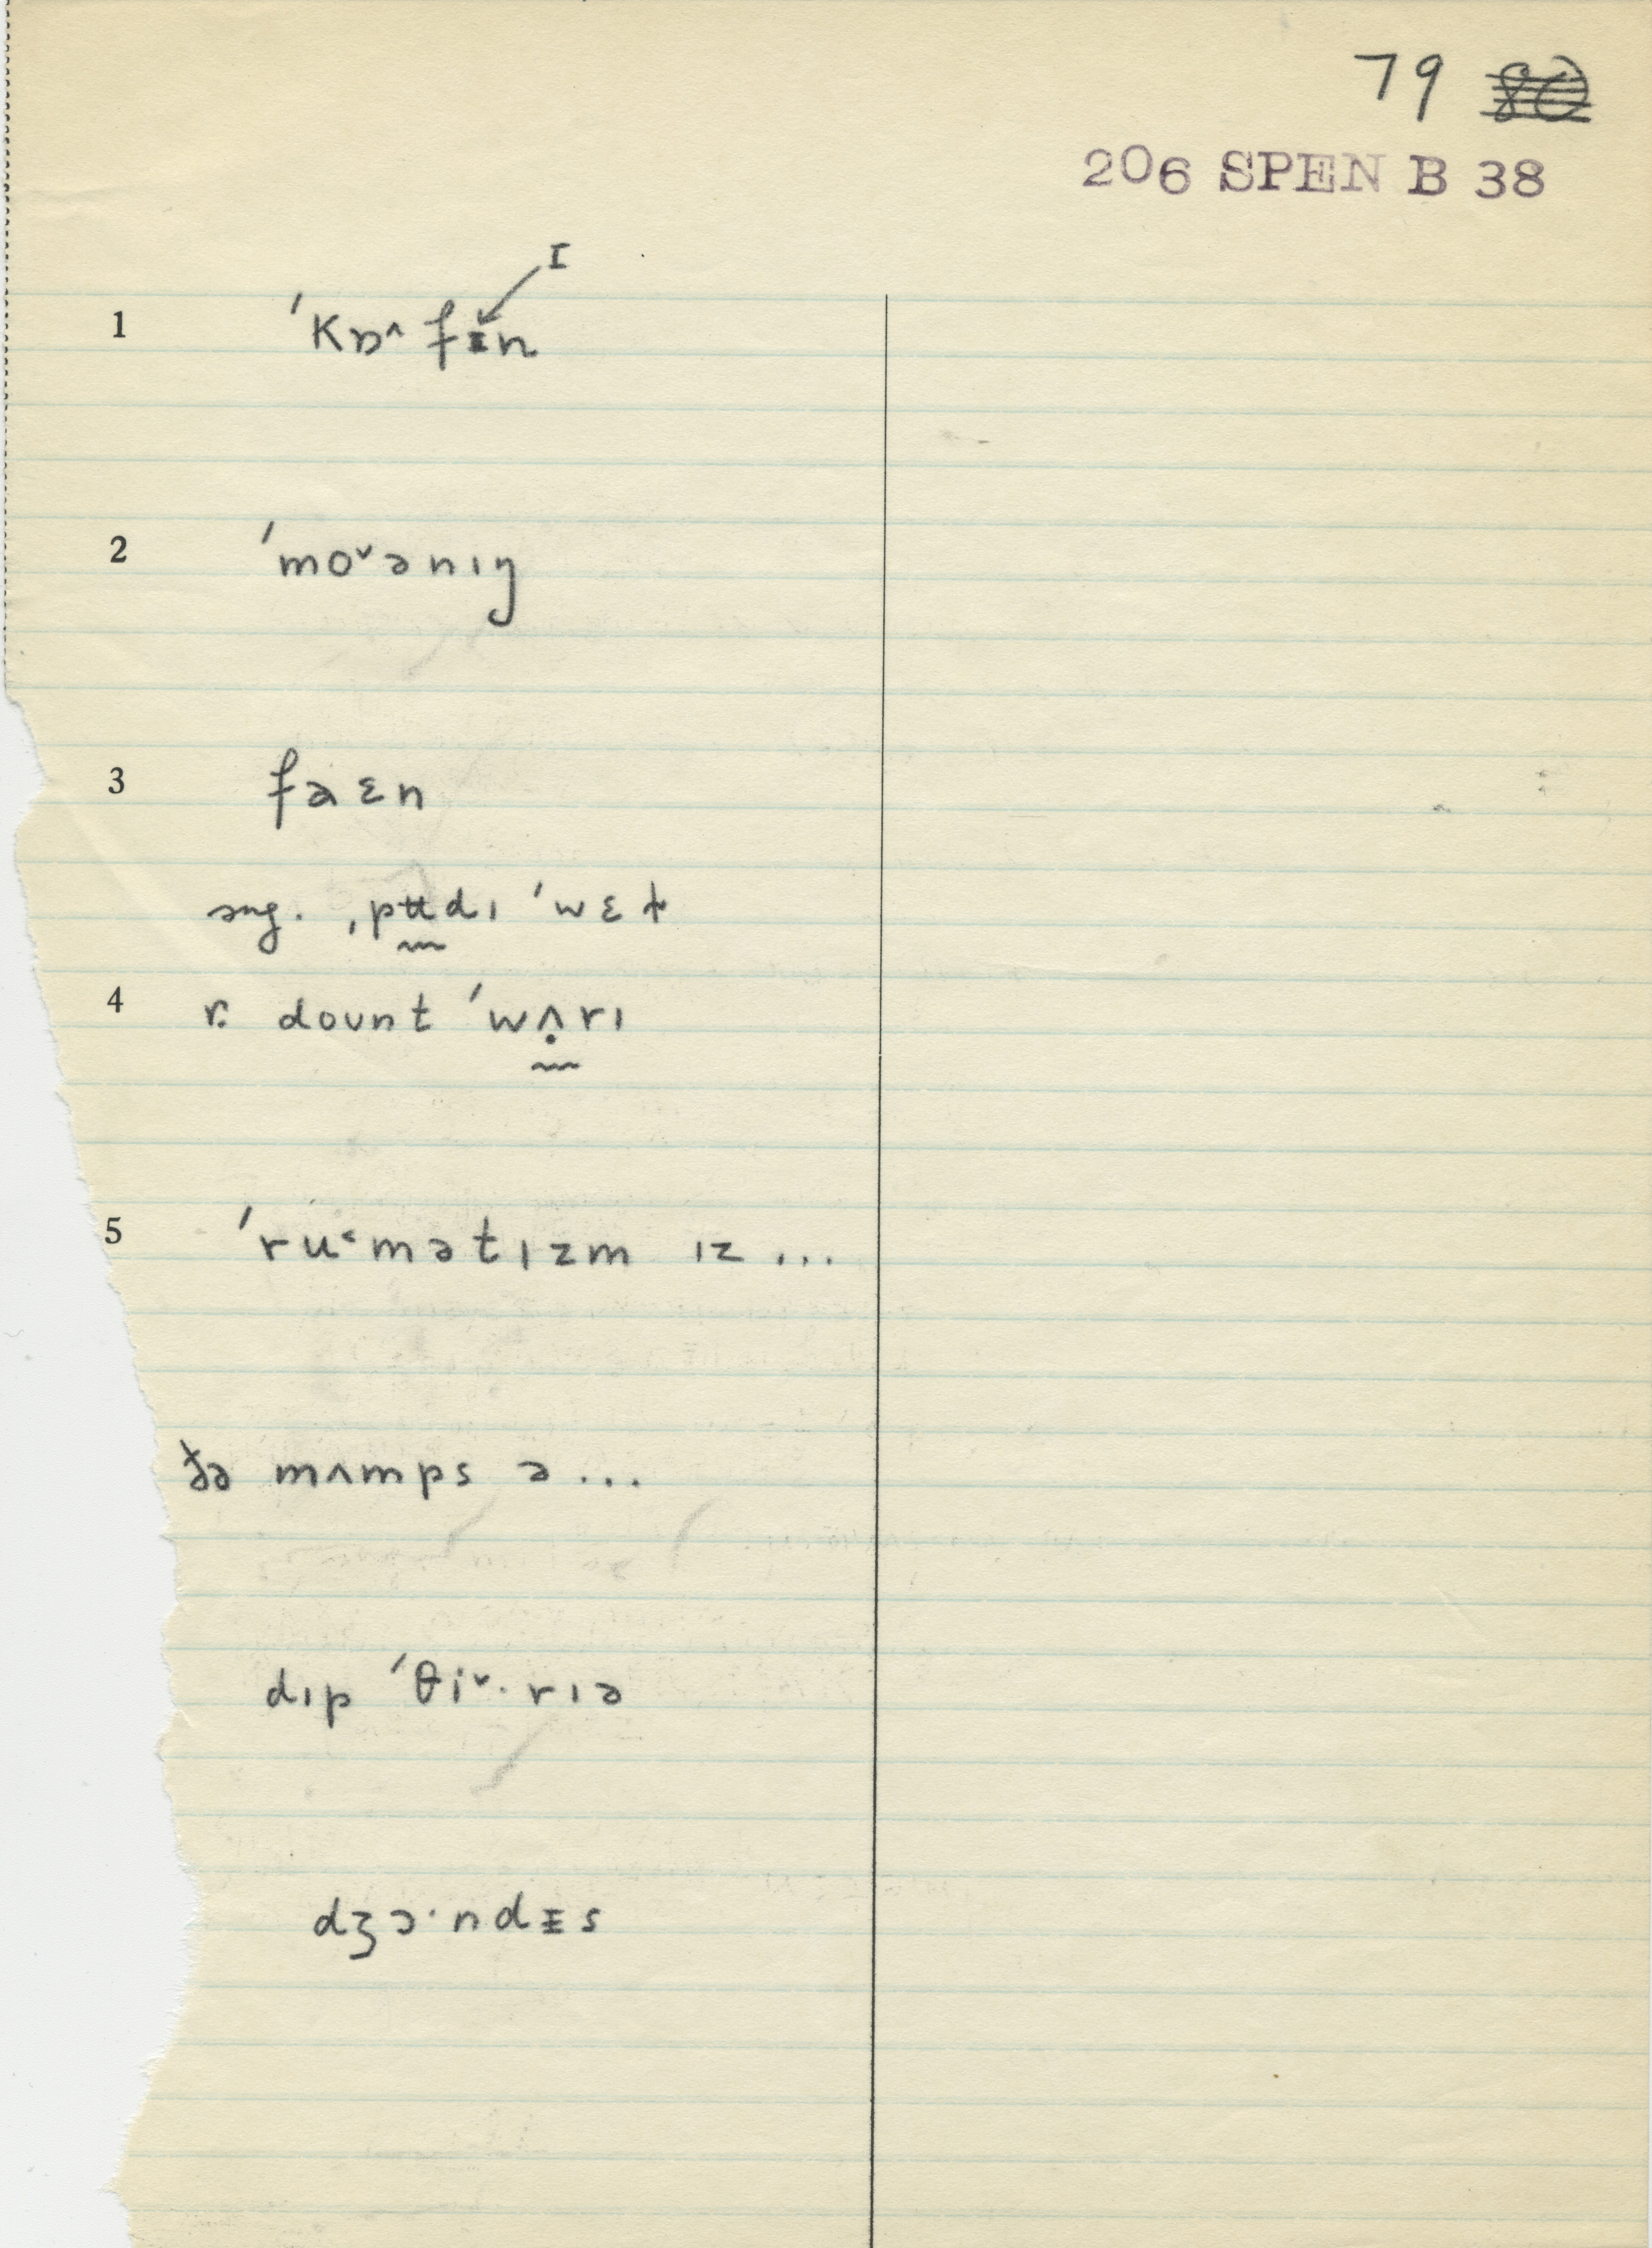 79 80
206 SPEN B 38
I
1 ˈkɒ^ fɪn
2 ˈmo˅ənɪŋ
3 faɛn
sug. ˌpʉdɪ ˈwɛɫ
4 r: doʊnt ˈwʌ̣rɪ
5 ˈru˂mətɪzm ɪz ...
ðə mʌmps ə ...
dɪp ˈθi˅·rɪə
dʒɔ·ndɪ̵s